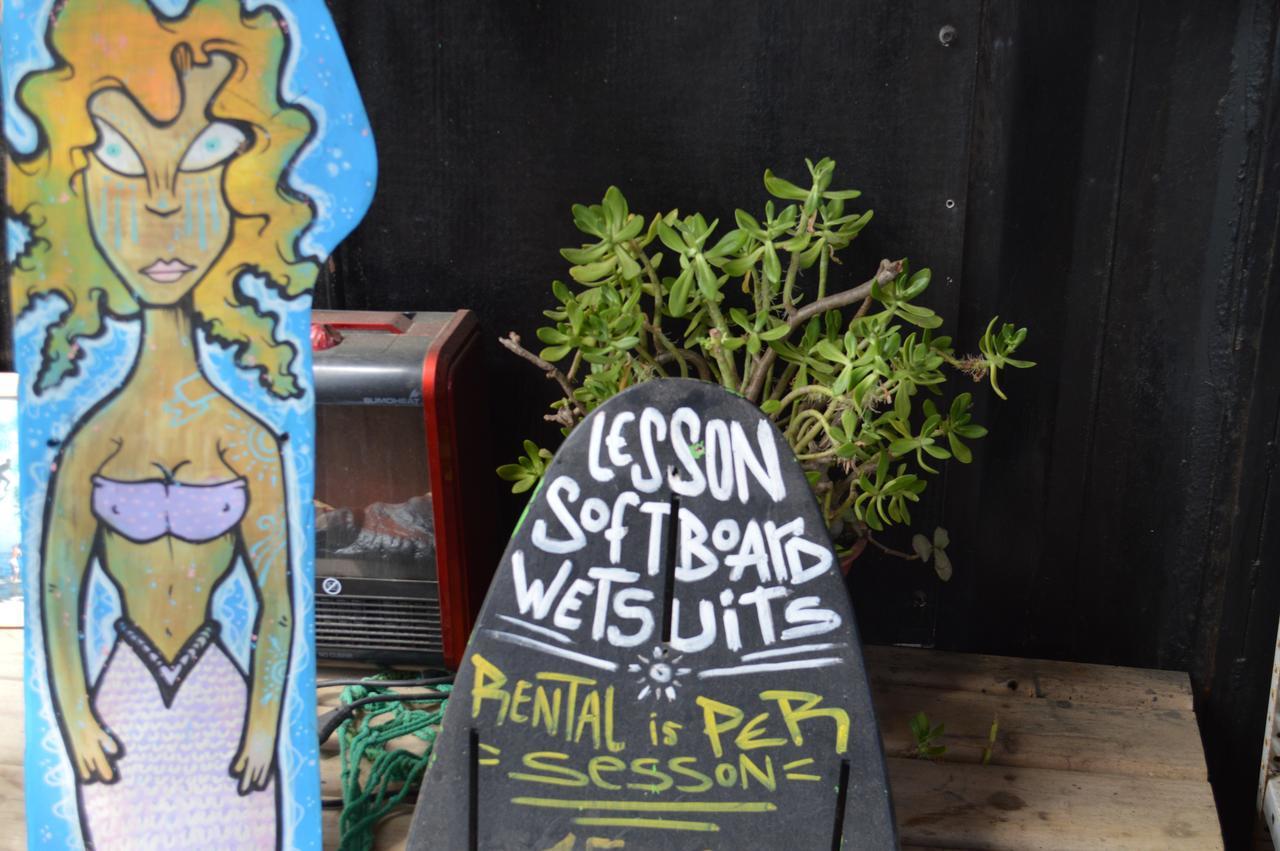 SUMOHEAT
LESSON
SOFTBOARD
WETSUITS
RENTAL is PER
= SESSON =